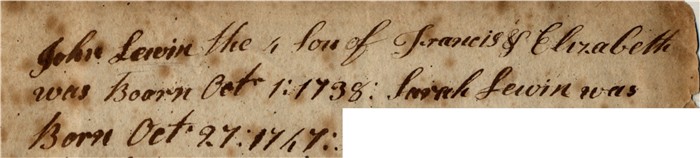 John Lewin the 4 Son of Francis & Elizabeth
was Boorn Octr 1: 1738: Sarah Lewin was
Born Octr 27: 1747: